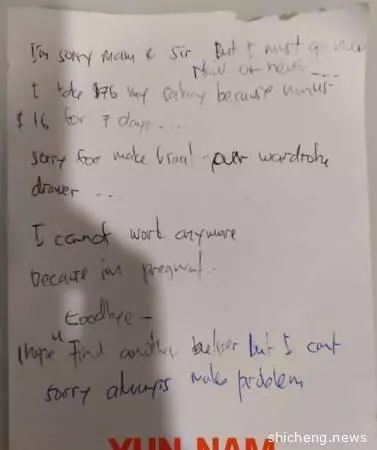 I'm sorry mam & sir But I must go now
Now or never
I take $76 my salary because minus
$16 for 7 days....
sorry for make your wardrobe
drawer ...
I cannot work anymore
because im pregnant..
Goodbye -
I hope u find another but I cant
sorry always make problem
YUN NAM
shicheng.news